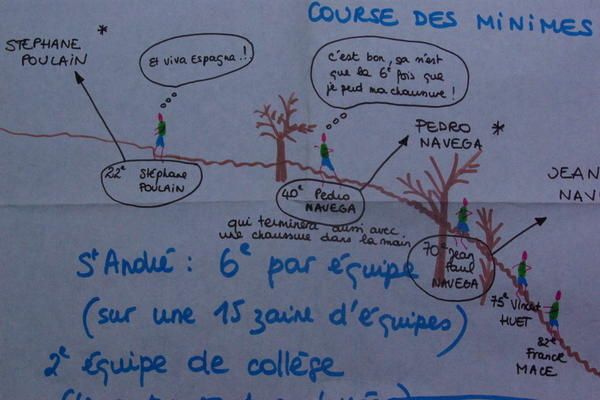 COURSE DES MINIMES
STEPHANE *
POULAIN
Et viva Espagna..!!
c'est bon, sa n'est
que la 6e fois que
je perd ma chaussure !
PEDRO *
NAVEGA
JEAN
22e Stéphane
POULAIN
40e Pedro
NAVEGA
qui terminera aussi avec
une chaussure dans la main
70e Jean
Paul
NAVEGA
75e Vincent
HUET
82e
Franck
MACE
St André : 6e par équipe
(sur une 15zaine d'équipes)
2e équipe de collège